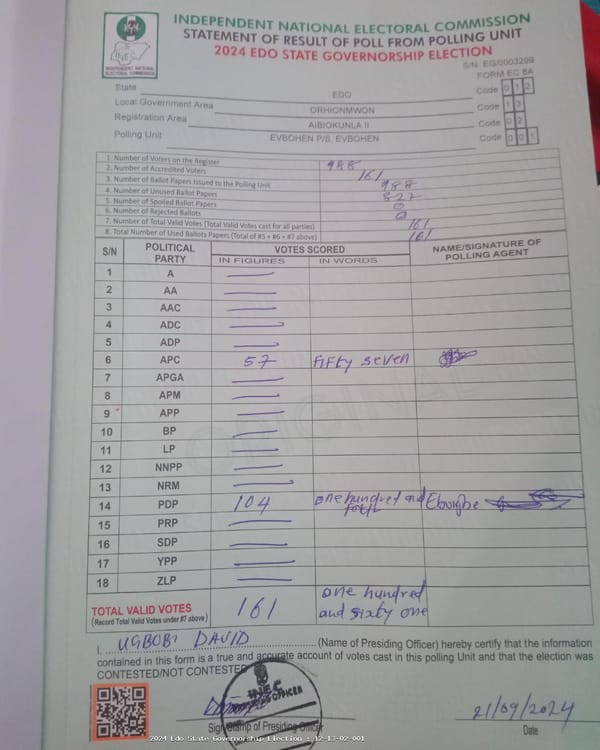 INDEPENDENT NATIONAL ELECTORAL COMMISSION
STATEMENT OF RESULT OF POLL FROM POLLING UNIT
2024 EDO STATE GOVERNORSHIP ELECTION
INEC
INDEPENDENT NATIONAL ELECTORAL COMMISSION
S/N: EG/0003299
FORM EC 8A
State EDO Code 0 1 2
Local Government Area ORHIONMWON Code 1 3
Registration Area AIBIOKUNLA II Code 0 2
Polling Unit EVBOHEN P/S, EVBOHEN Code 0 0 1
1. Number of Voters on the Register 988
2. Number of Accredited Voters 161
3. Number of Ballot Papers Issued to the Polling Unit 988
4. Number of Unused Ballot Papers 827
5. Number of Spoiled Ballot Papers 0
6. Number of Rejected Ballots 0
7. Number of Total Valid Votes (Total Valid Votes cast for all parties) 161
8. Total Number of Used Ballots Papers (Total of #5 + #6 + #7 above) 161
S/N POLITICAL PARTY VOTES SCORED NAME/SIGNATURE OF POLLING AGENT
IN FIGURES IN WORDS
1 A
2 AA
3 AAC
4 ADC
5 ADP
6 APC 57 Fifty seven
7 APGA
8 APM
9 APP
10 BP
11 LP
12 NNPP
13 NRM
14 PDP 104 one hundred and
15 PRP
16 SDP
17 YPP
18 ZLP
TOTAL VALID VOTES 161 one hundred
(Record Total Valid Votes under #7 above) and sixty one
I, UGBOBI DAVID (Name of Presiding Officer) hereby certify that the information
contained in this form is a true and accurate account of votes cast in this polling Unit and that the election was
CONTESTED/NOT CONTESTED
INEC
PRESIDING OFFICER
21/09/2024
Sign/Stamp of Presiding Officer Date
2024 Edo State Governorship Election : 12-13-02-001